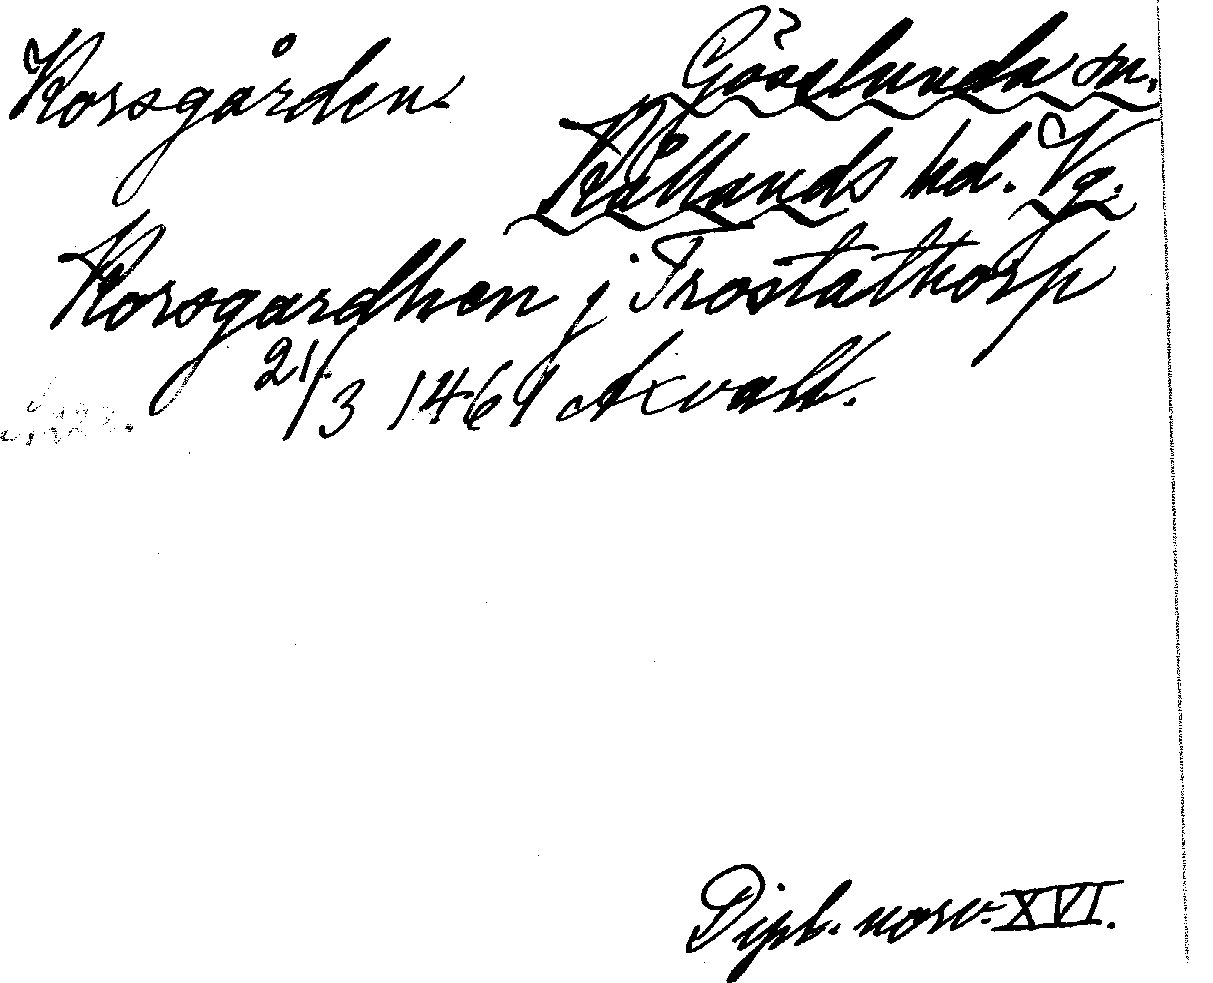 Korsgården
Gösslunda sn.
Kållands hd. Vg.
Korsgardhen j Trostathorp
21/3 1461 Axvall.
Dipl. norv. XVI.